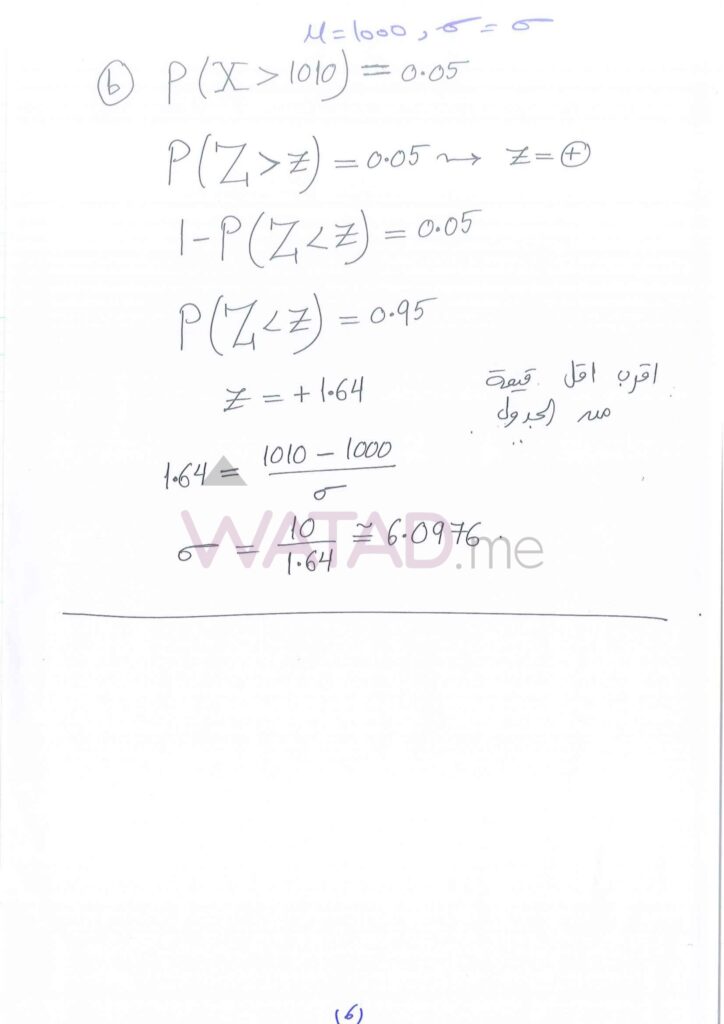 μ=1000, σ = σ
(b) P(X>1010) = 0.05
P(Z>z) = 0.05 ⇝ z = ⊕
1-P(Z<z) = 0.05
P(Z<z) = 0.95
z = +1.64
اقرب اقل قيمة
من الجدول
1.64 = (1010 - 1000)/σ
σ = 10/1.64 ≅ 6.0976.
WATAD.me
(6)